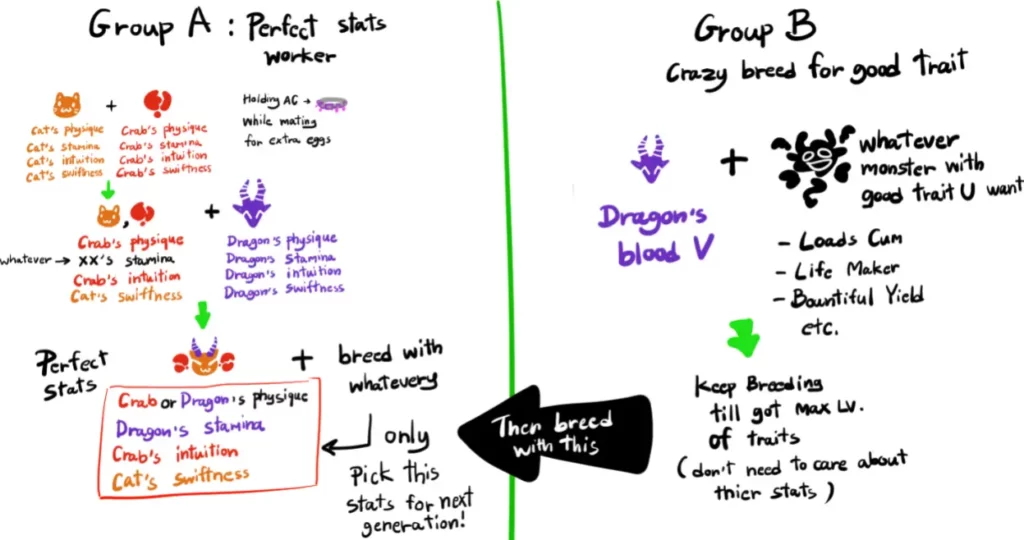 Group A : Perfect stats
worker
Holding AC →
while mating
for extra eggs
+
Cat's physique
Cat's stamina
Cat's intuition
Cat's swiftness
Crab's physique
Crab's stamina
Crab's intuition
Crab's swiftness
,
+
Crab's physique
whatever → XX's stamina
Crab's intuition
Cat's swiftness
Dragon's physique
Dragon's stamina
Dragon's intuition
Dragon's swiftness
Perfect
stats
+
breed with
whatevery
Crab or Dragon's physique
Dragon's stamina
Crab's intuition
Cat's swiftness
only
Pick this
stats for next
generation!
Group B
Crazy breed for good trait
+
Dragon's
blood V
whatever
monster with
good trait U want
- Loads Cum
- Life Maker
- Bountiful Yield
etc.
Keep Breeding
till got max LV.
of traits
(don't need to care about
thier stats)
Then breed
with this